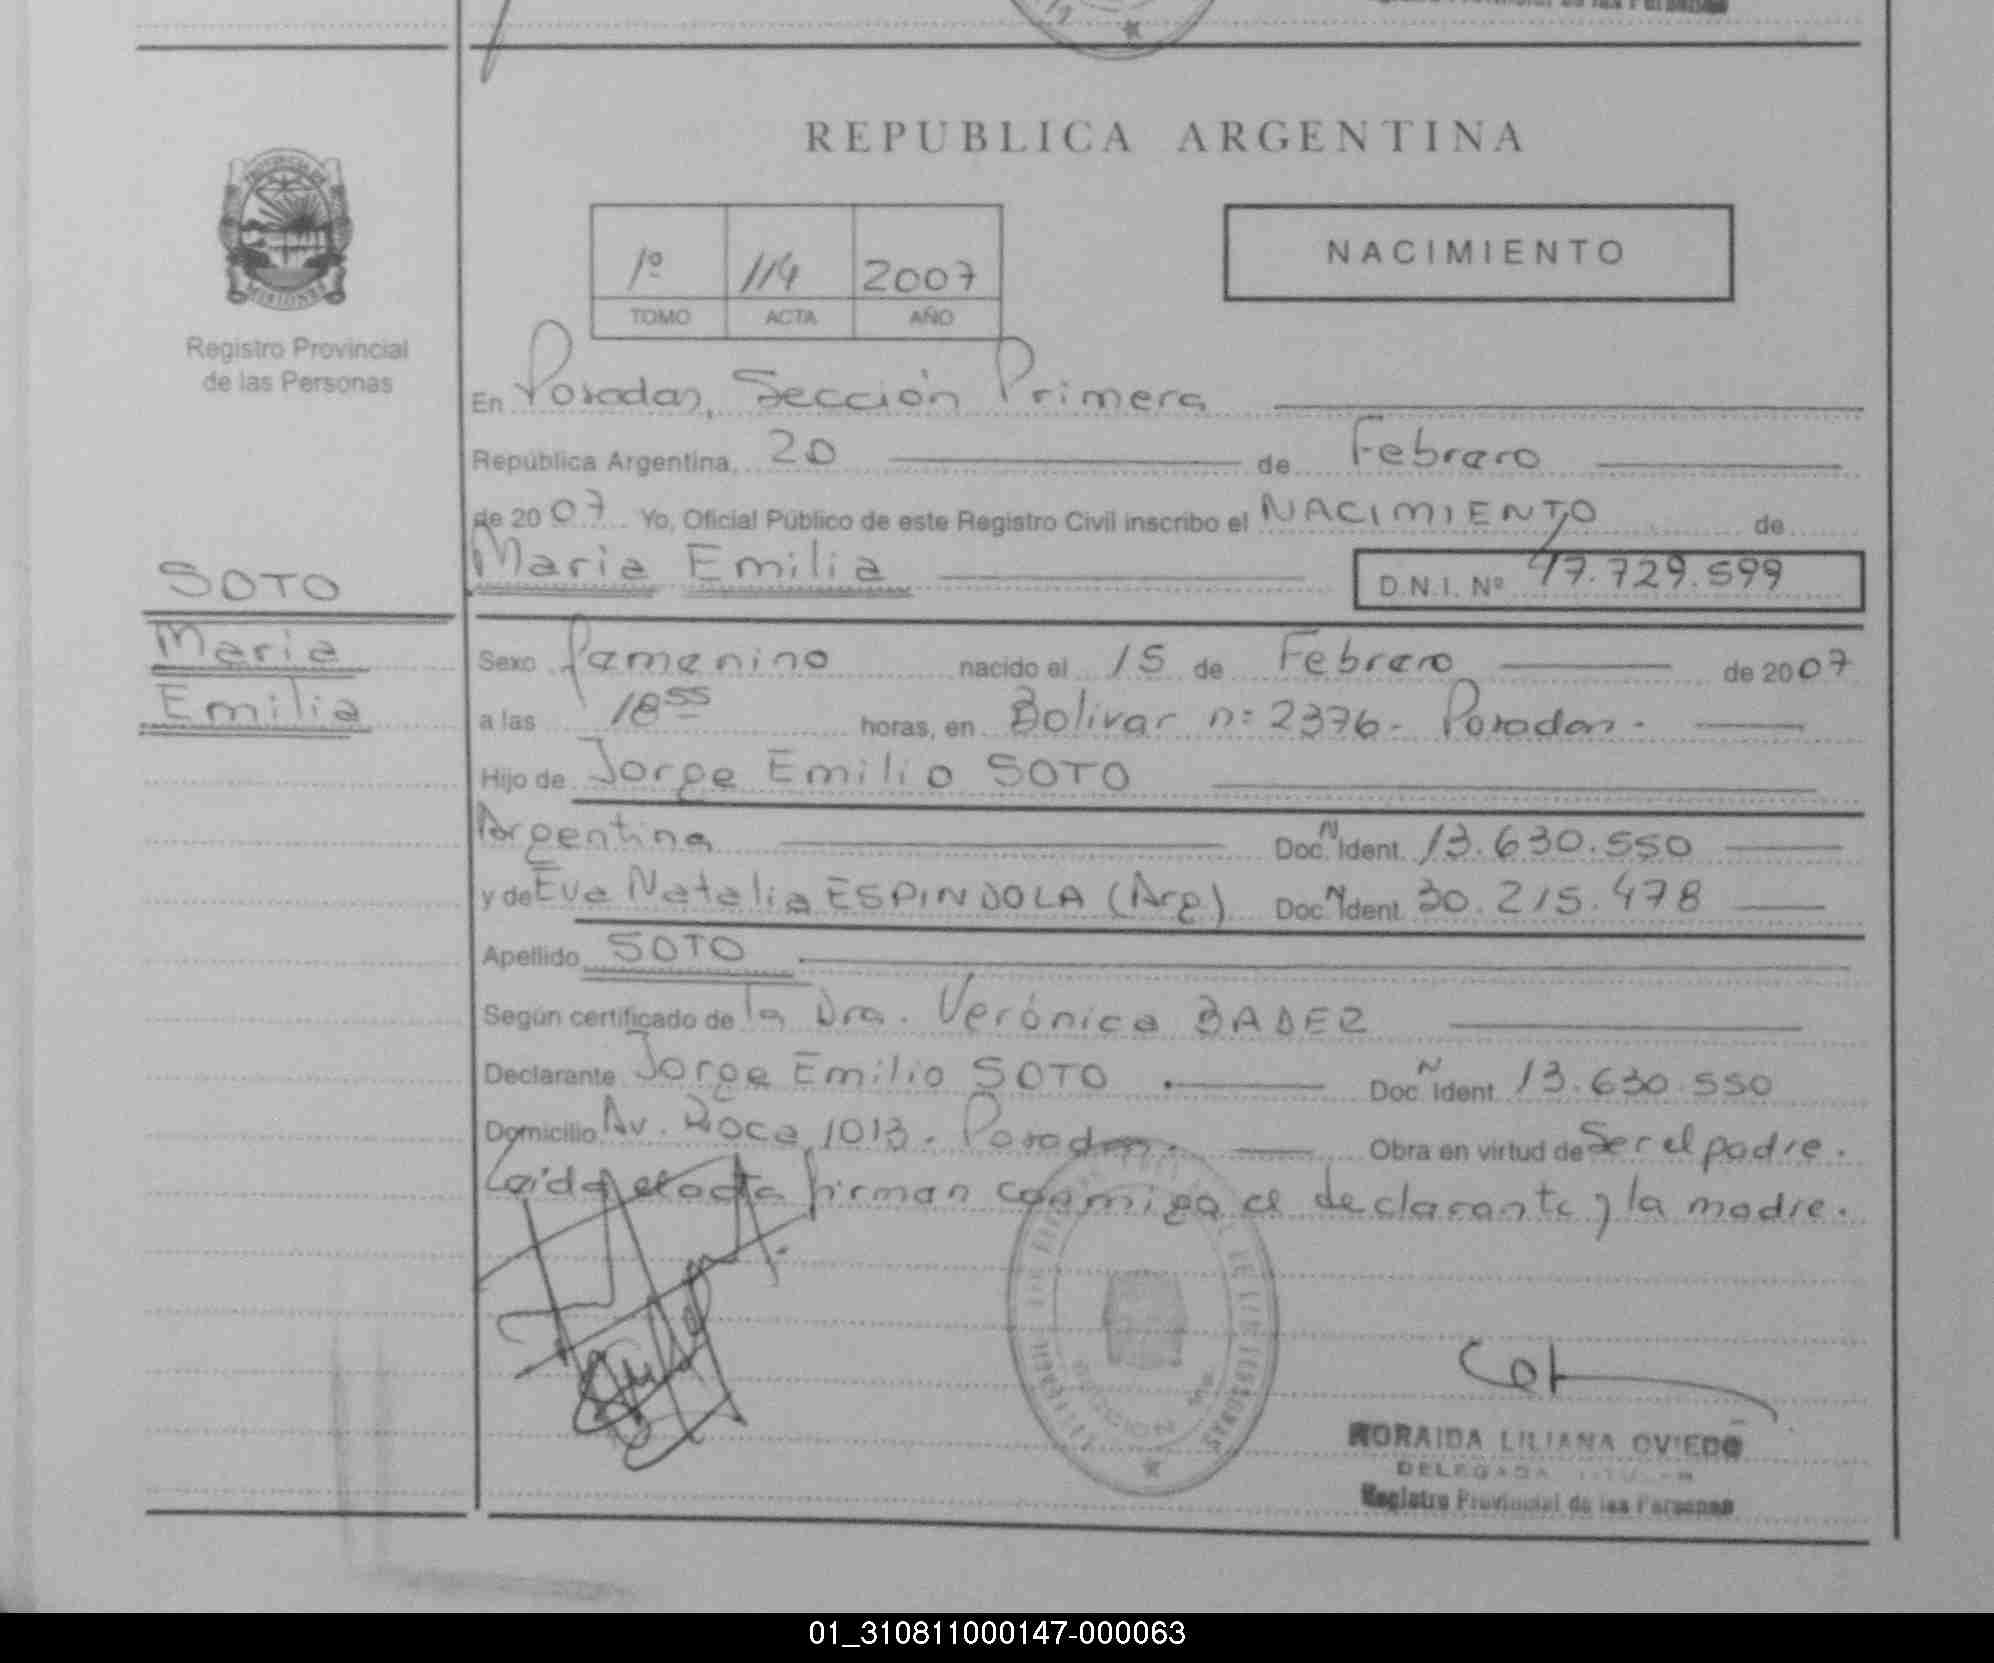 REPUBLICA ARGENTINA
PROVINCIA DE
MISIONES
Registro Provincial
de las Personas
NACIMIENTO
1º 114 2007
TOMO ACTA AÑO
En Posadas, Sección Primera
República Argentina, 20 de Febrero
de 2007 Yo, Oficial Público de este Registro Civil inscribo el NACIMIENTO de
Maria Emilia D.N.I. Nº 47.729.599
SOTO
Maria
Emilia
Sexo femenino nacido el 15 de Febrero de 2007
a las 18 55 horas, en Bolivar n: 2376- Posadas.
Hijo de Jorge Emilio SOTO
Argentina Doc. N Ident. 13.630.550
y de Eva Natalia ESPINDOLA (Arg) Doc. N Ident. 30.215.478
Apellido SOTO
Según certificado de la Dra. Verónica BADEZ
Declarante Jorge Emilio SOTO Doc. N Ident. 13.630.550
Domicilio Av. Roca 1013. Posadas. Obra en virtud de Ser el padre.
Leida el acta firman conmigo el declarante y la madre.
SECCION
DELEGADA
LILIANA OVIEDO
Registro Provincial de las Personas
01_310811000147-000063